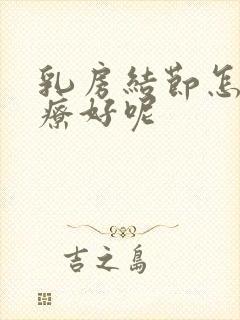 乳房結節怎
療好呢
吉之島